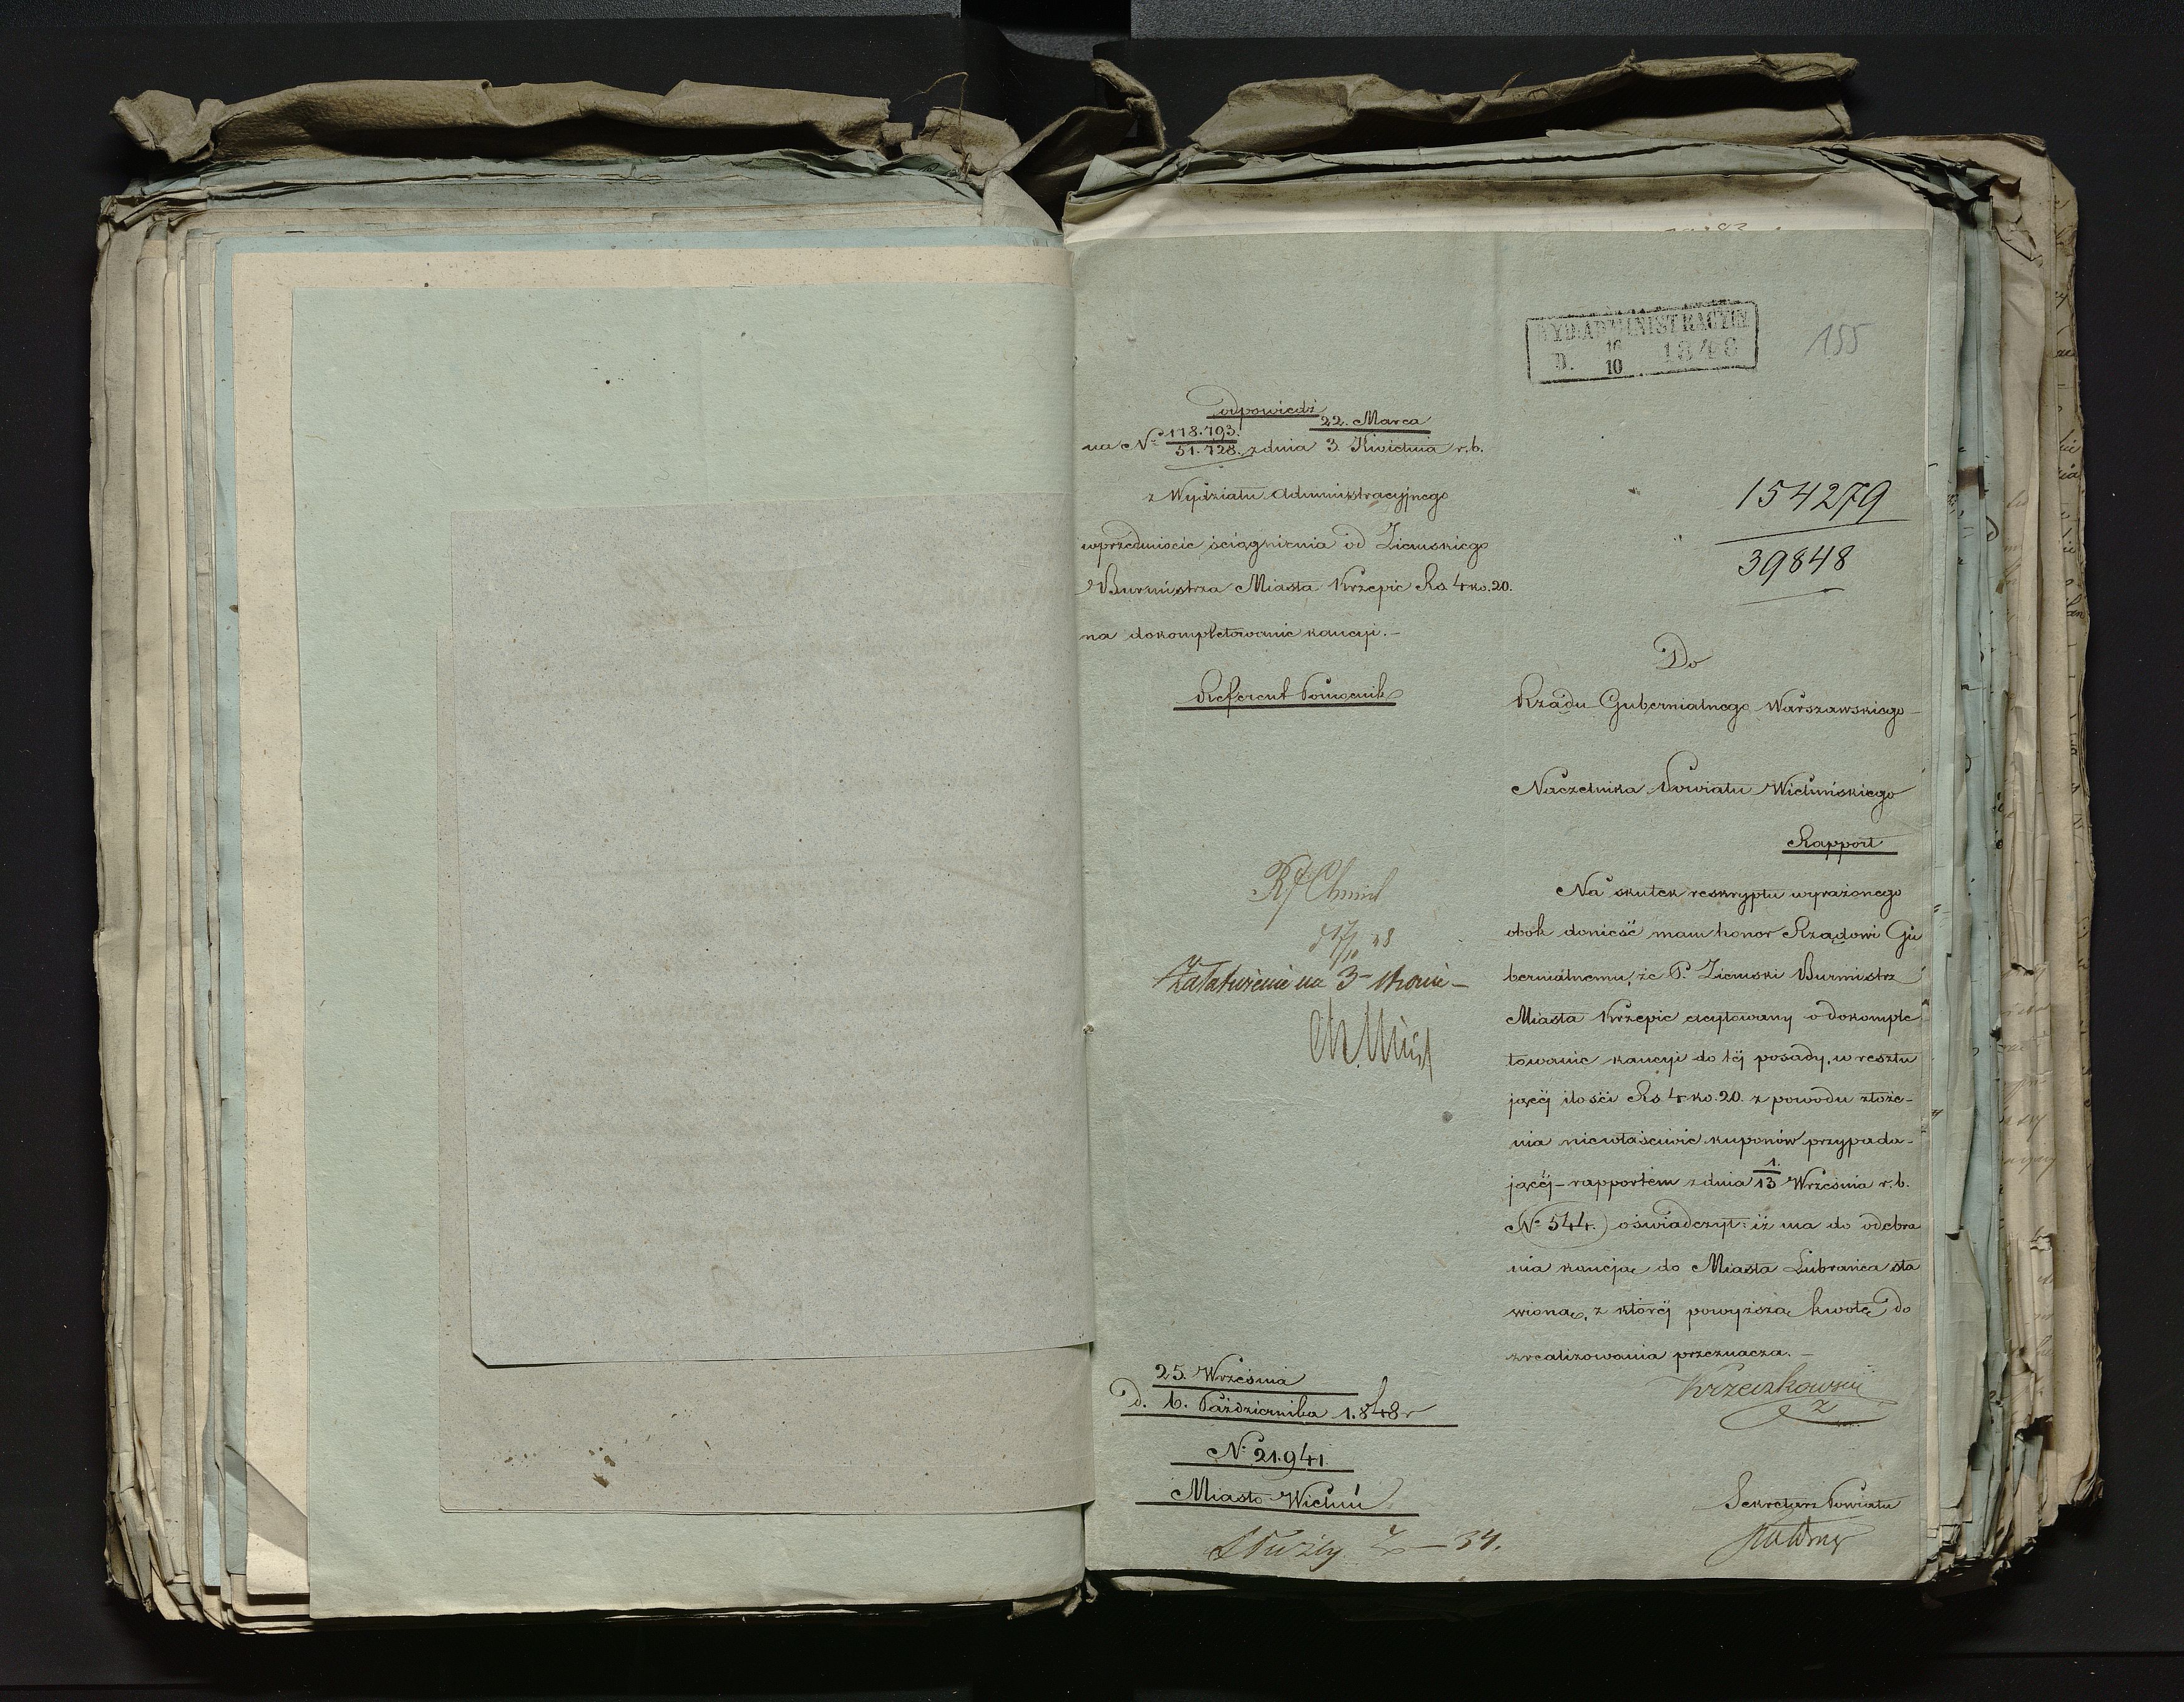 WYD: ADMINISTRACYJN
D. 16/10 1848
155
odpowiedź
na N: 118.793./51.728. z dnia 22. Marca/3. Kwietnia r. b.
z Wydziału Administracyjnego
w przedmiocie ściągnienia od Ziemskiego
Burmistrza Miasta Krzepic Rs 4 ko. 20.
na dokompletowanie kaucyi. –
Referent Pomocnik
154279
39848
Do
Rządu Gubernialnego Warszawskiego
Naczelnika Powiatu Wieluńskiego
Rapport
Na skutek reskryptu wyrażonego
obok donieść mam honor Rządowi Gu
bernialnemu, że P. Ziemski Burmistrz
Miasta Krzepic excytowany o dokomple
towanie kaucyi do téj posady, w resztu
jącéj ilości Rs 4 ko. 20. z powodu złoże-
nia niewłaściwie kuponów przypada-
jącéj – rapportem z dnia 1/13 Września r. b.
N: 544. oświadczył: iż ma do odebra
nia kaucją do Miasta Lubrańca sta
wioną, z któréj powyższą kwotę do
zrealizowania przeznacza. –
Krzeczkowski
Sekretarz Powiatu
Załatwienie na 3 stronie –
25. Września
d. 6. Października 1.848 r
N: 21.941.
Miasto Wieluń
34.